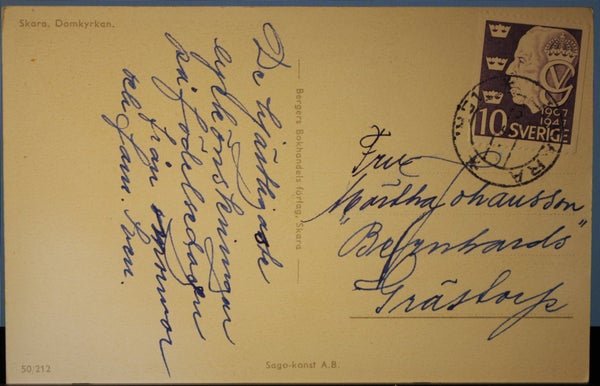 Skara, Domkyrkan.
De hjärtligaste
lyckönskningar
på födelsedagen
från mormor
och fam. Sven.
Bergers Bokhandels förlag, Skara
10
1907
1947
SVERIGE
SKARA
Fru
Märtha Johansson
"Bernhards"
Grästorp
50/212
Sago-konst A.B.